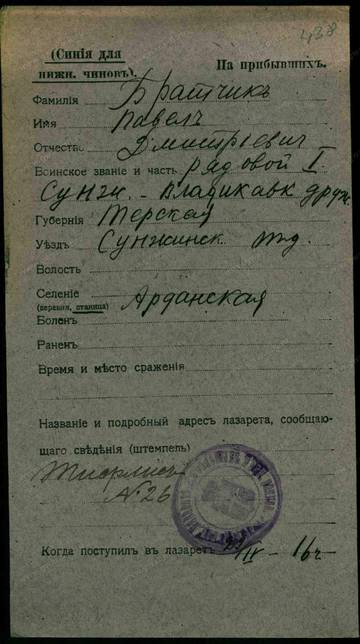 438
(Синія для
нижн. чиновъ).
На прибывшихъ.
Фамилія Братчикъ
Имя Павелъ
Отчество Дмитріевич
Воинское званіе и часть рядовой I
Сунж. - Владикавк друж
Губернія Терская
Уѣздъ Сунжинск. отд.
Волость
Селеніе Арданская
(деревня, станица)
Боленъ
Раненъ
Время и мѣсто сраженія
Названіе и подробный адресъ лазарета, сообщаю-
щаго свѣдѣнія (штемпель)
Тифлисъ
№ 26
Когда поступилъ въ лазаретъ IV - 16 г